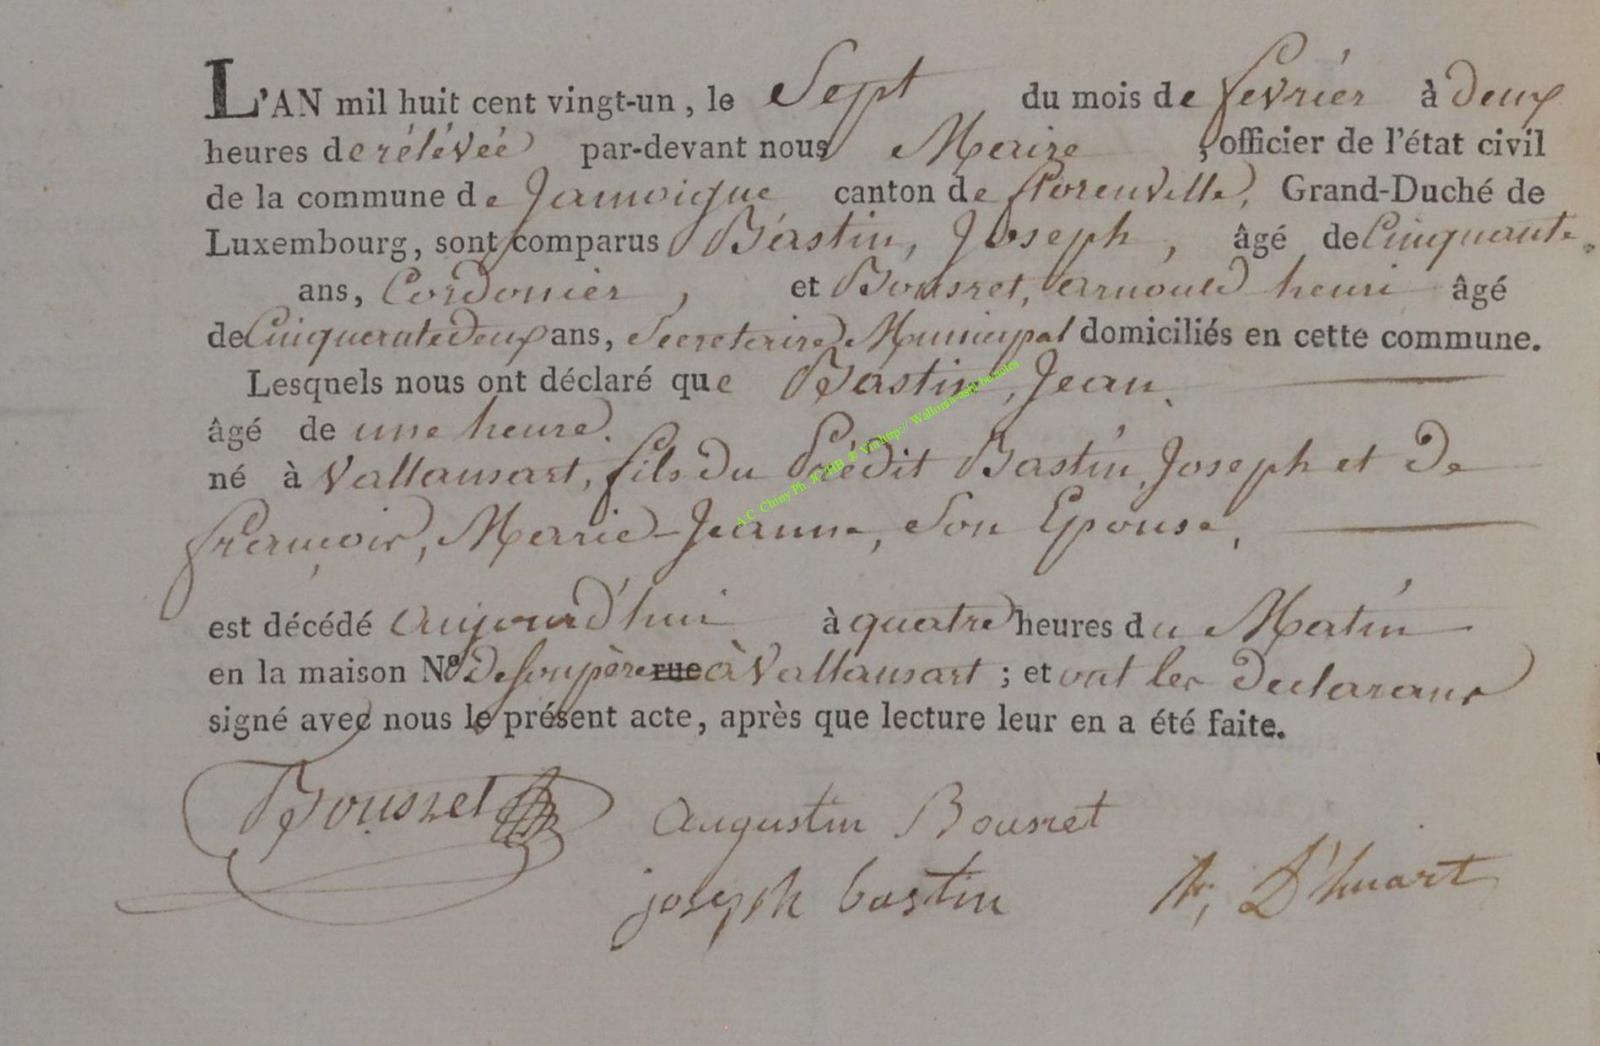 L'AN mil huit cent vingt-un, le Sept du mois de fevrier à deux
heures de rélévée par-devant nous Maire, officier de l'état civil
de la commune de Jamoigne canton de florenville, Grand-Duché de
Luxembourg, sont comparus Bastin, Joseph, âgé de Cinquante
ans, Cordonier, et Bousret, arnould henri âgé
de Cinquante deux ans, Secretaire Municipal domiciliés en cette commune.
Lesquels nous ont déclaré que Bastin, Jean,
âgé de une heure.
né à Vallansart, fils du Prédit Bastin, Joseph et de
françois, Marie-Jeanne, Son Epouse,
est décédé aujourd'hui à quatre heures du Matin
en la maison Nº de son père rue à Vallansart; et ont les declarans
signé avec nous le présent acte, après que lecture leur en a été faite.
Bousret Augustin Bousret
joseph bastin D'huart
A.C. Chiny Ph.